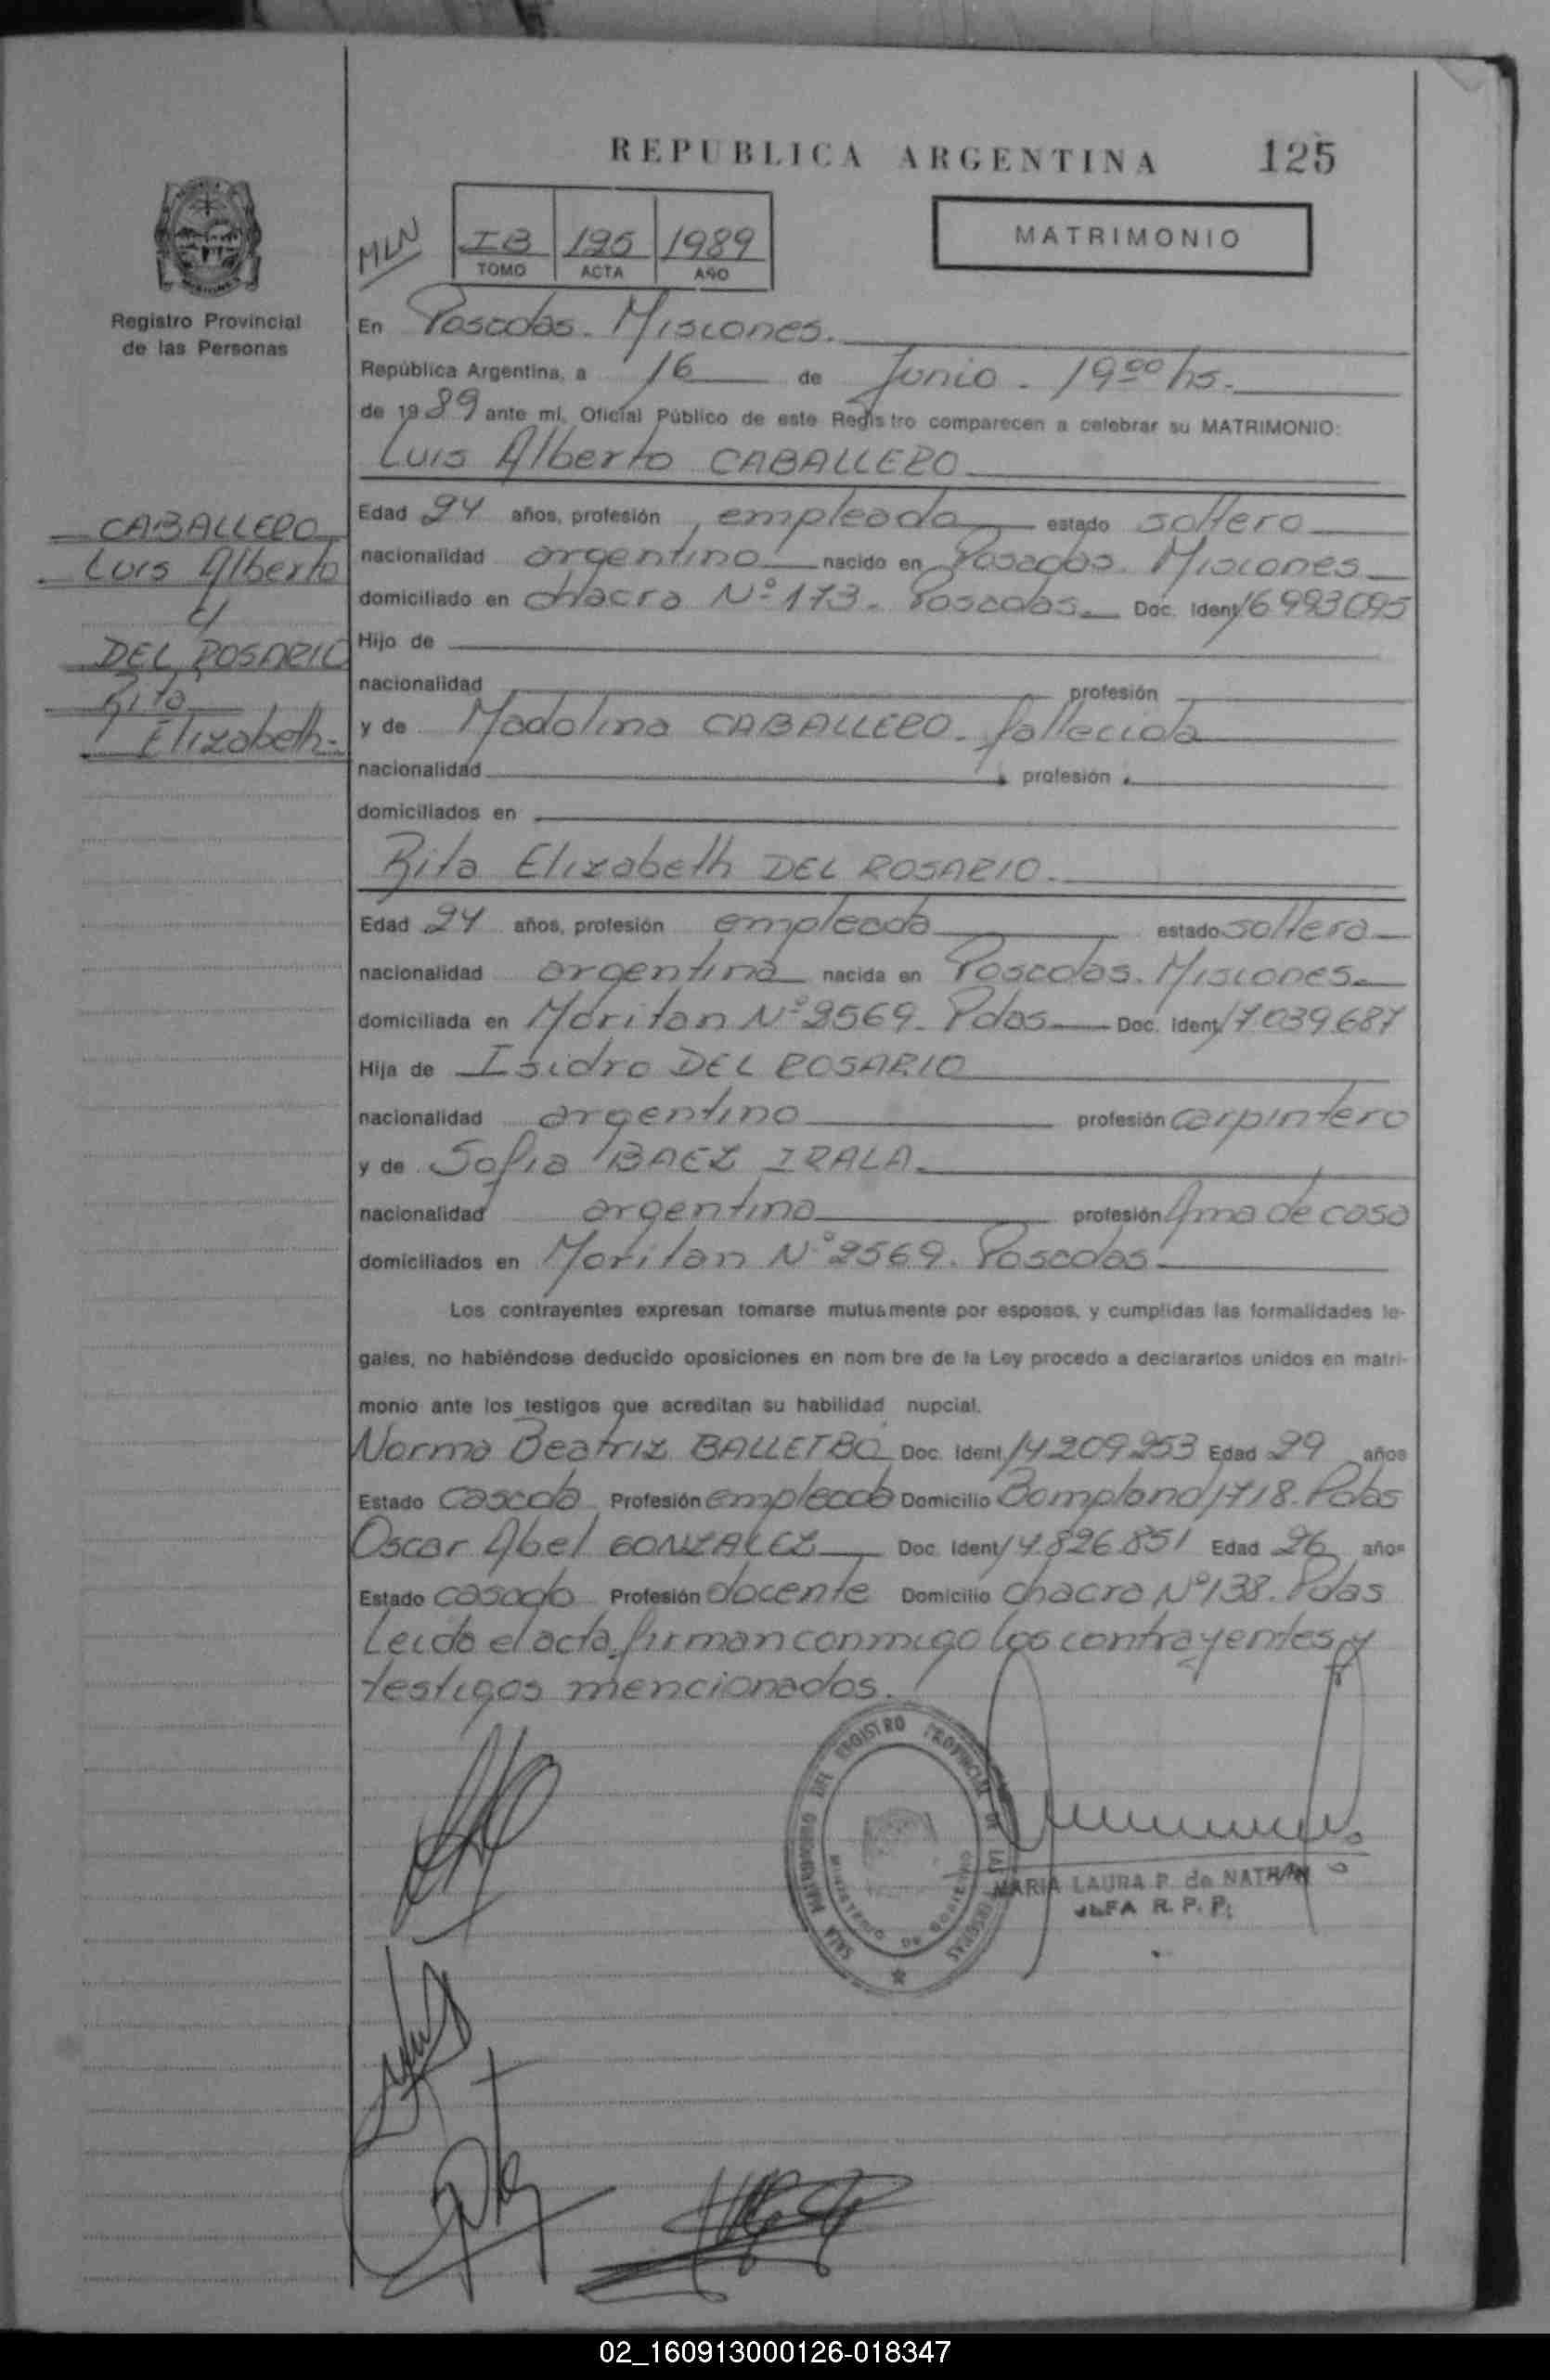 REPUBLICA ARGENTINA 125
MATRIMONIO
MLN
IB 125 1989
TOMO ACTA AÑO
Registro Provincial
de las Personas
En Posadas. Misiones.
República Argentina, a 16 de Junio. 19⁰⁰ hs.
de 1989 ante mí, Oficial Público de este Registro comparecen a celebrar su MATRIMONIO:
Luis Alberto CABALLERO
CABALLERO
Luis Alberto
c/
DEL ROSARIO
Rita
Elizabeth.
Edad 24 años, profesión empleado estado soltero
nacionalidad argentino nacido en Posadas. Misiones
domiciliado en chacra Nº 173. Posadas. Doc. Ident. 16993095
Hijo de
nacionalidad profesión
y de Madolina CABALLERO. fallecida
nacionalidad profesión
domiciliados en
Rita Elizabeth DEL ROSARIO.
Edad 24 años, profesión empleada estado soltera
nacionalidad argentina nacida en Posadas. Misiones.
domiciliada en Moritan Nº 2569. Pdas Doc. Ident. 17.039.687
Hija de Isidro DEL ROSARIO
nacionalidad argentino profesión carpintero
y de Sofia BAEZ IRALA.
nacionalidad argentina profesión Ama de casa
domiciliados en Moritan Nº 2569. Posadas.
Los contrayentes expresan tomarse mutuamente por esposos, y cumplidas las formalidades le-
gales, no habiéndose deducido oposiciones en nom bre de la Ley procedo a declararlos unidos en matri-
monio ante los testigos que acreditan su habilidad nupcial.
Norma Beatriz BALLETBO Doc. Ident. 14.209.253 Edad 29 años
Estado casada Profesión empleada Domicilio Bompland 1718. Pdas
Oscar Abel GONZALEZ Doc. Ident. 14.826.851 Edad 26 años
Estado casado Profesión docente Domicilio chacra Nº 138. Pdas
Leida el acta, firman conmigo los contrayentes y
testigos mencionados.
REGISTRO PROVINCIAL DE LAS PERSONAS
MINISTERIO DE GOBIERNO
MARIA LAURA P. de NATHAN
JEFA R. P. P.
02_160913000126-018347